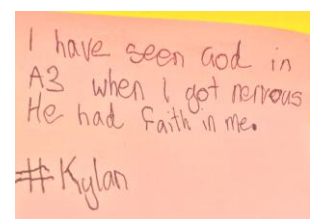 I have seen God in
A3 when I got nervous
He had faith in me.
#Kylan